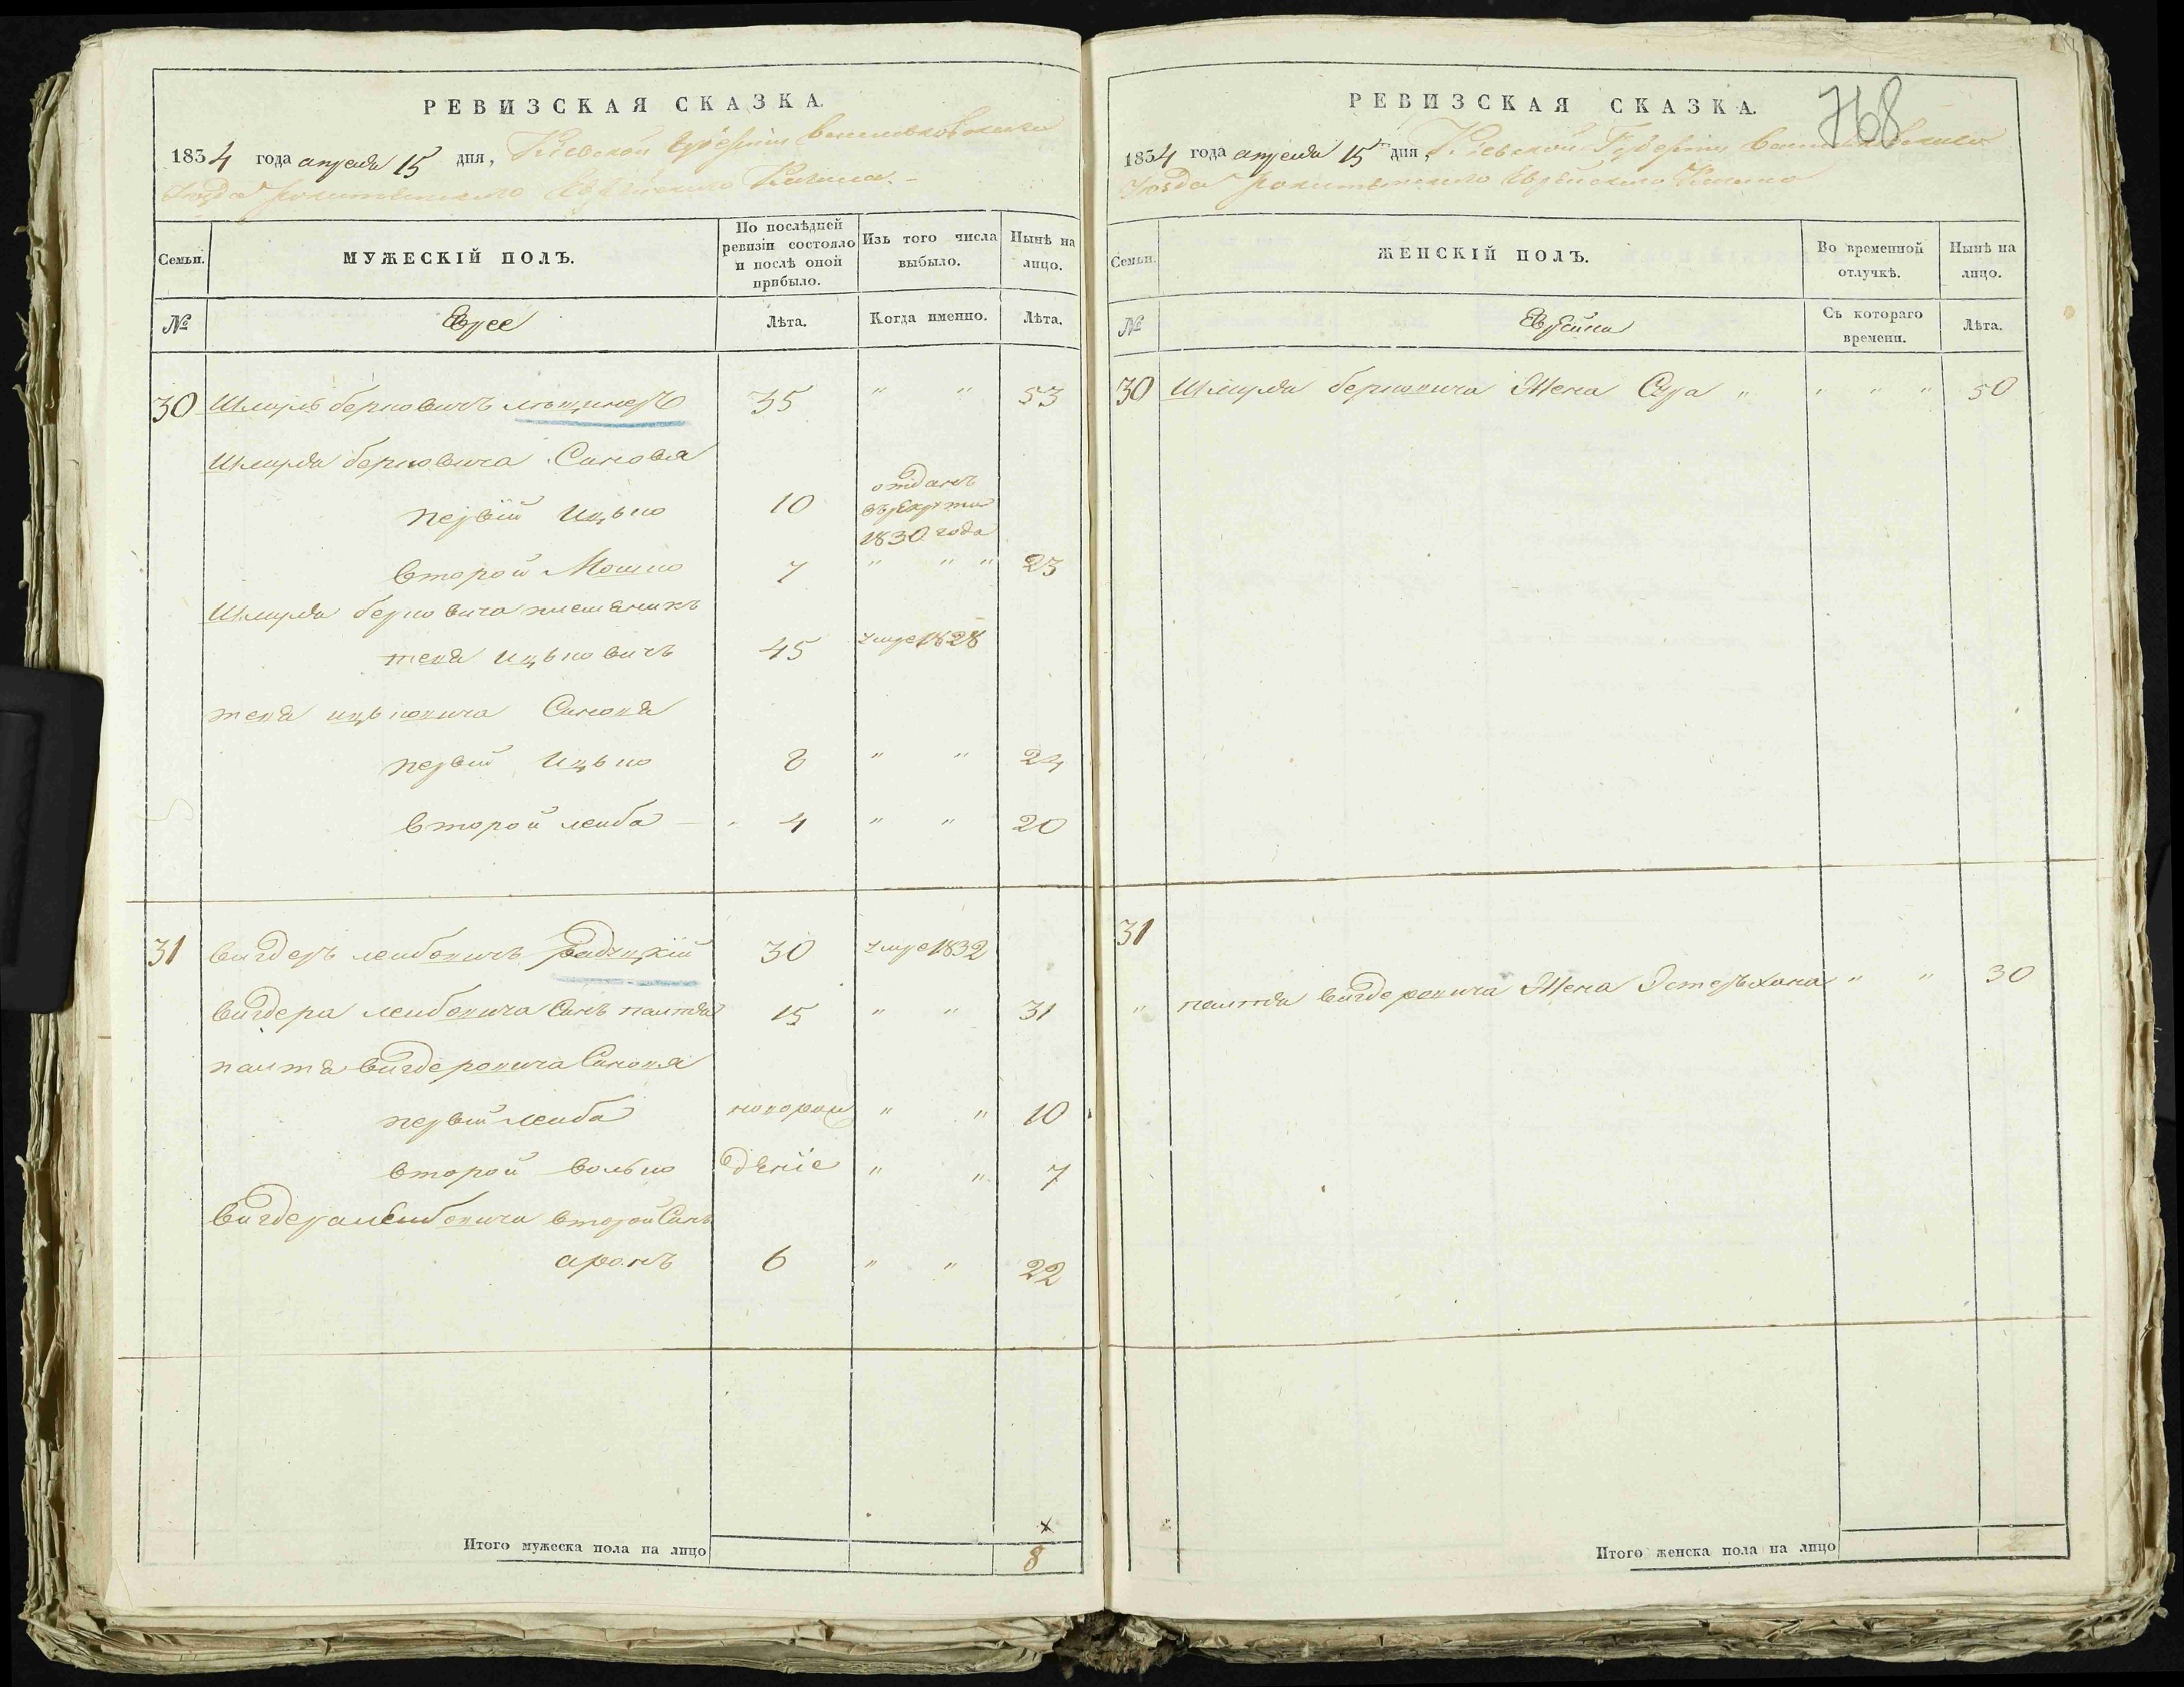 РЕВИЗСКАЯ СКАЗКА.
1834 года апреля 15 дня, Кіевской Губерніи Васильковского
Уезда рокитянского Еврейского Кагала.
Семьи.
МУЖЕСКІЙ ПОЛЪ.
По послѣдней ревизіи состояло и послѣ оной прибыло.
Изъ того числа выбыло.
Нынѣ на лицо.
№
Еврее
Лѣта.
Когда именно.
Лѣта.
30 Шмуль берковичъ 35 " " 53
Шмуля берковича Синовя
первій Ицько 10 отданъ въ рекруты 1830 года
второй Мошко 7 " " " 23
Шмуля берковича племеникъ
тевя ицьковичъ 45 умре 1828
тевя ицьковича Синовя
первій Ицько 8 " " 24
второй леиба 4 " " 20
31 вигдеръ леибовичъ радзицкій 30 умре 1832
вигдера леибовича Синъ палтя 15 " " 31
палтя вигдеровича Синовя
первій леиба новорож " " 10
второй волько деніе " " 7
вигдера леибовича второй Синъ
аронъ 6 " " 22
Итого мужеска пола на лицо
8
РЕВИЗСКАЯ СКАЗКА.
768
1834 года апреля 15 дня, Кіевской Губерніи Васильковского
Уезда рокитянского Еврейского Кагала
Семьи.
ЖЕНСКІЙ ПОЛЪ.
Во временной отлучкѣ.
Нынѣ на лицо.
№
Еврейки
Съ котораго времени.
Лѣта.
30 Шмуля берковича Жена Сура " " " " 50
31
" палтя вигдеровича Жена Эстеръ хана " " 30
Итого женска пола на лицо
2